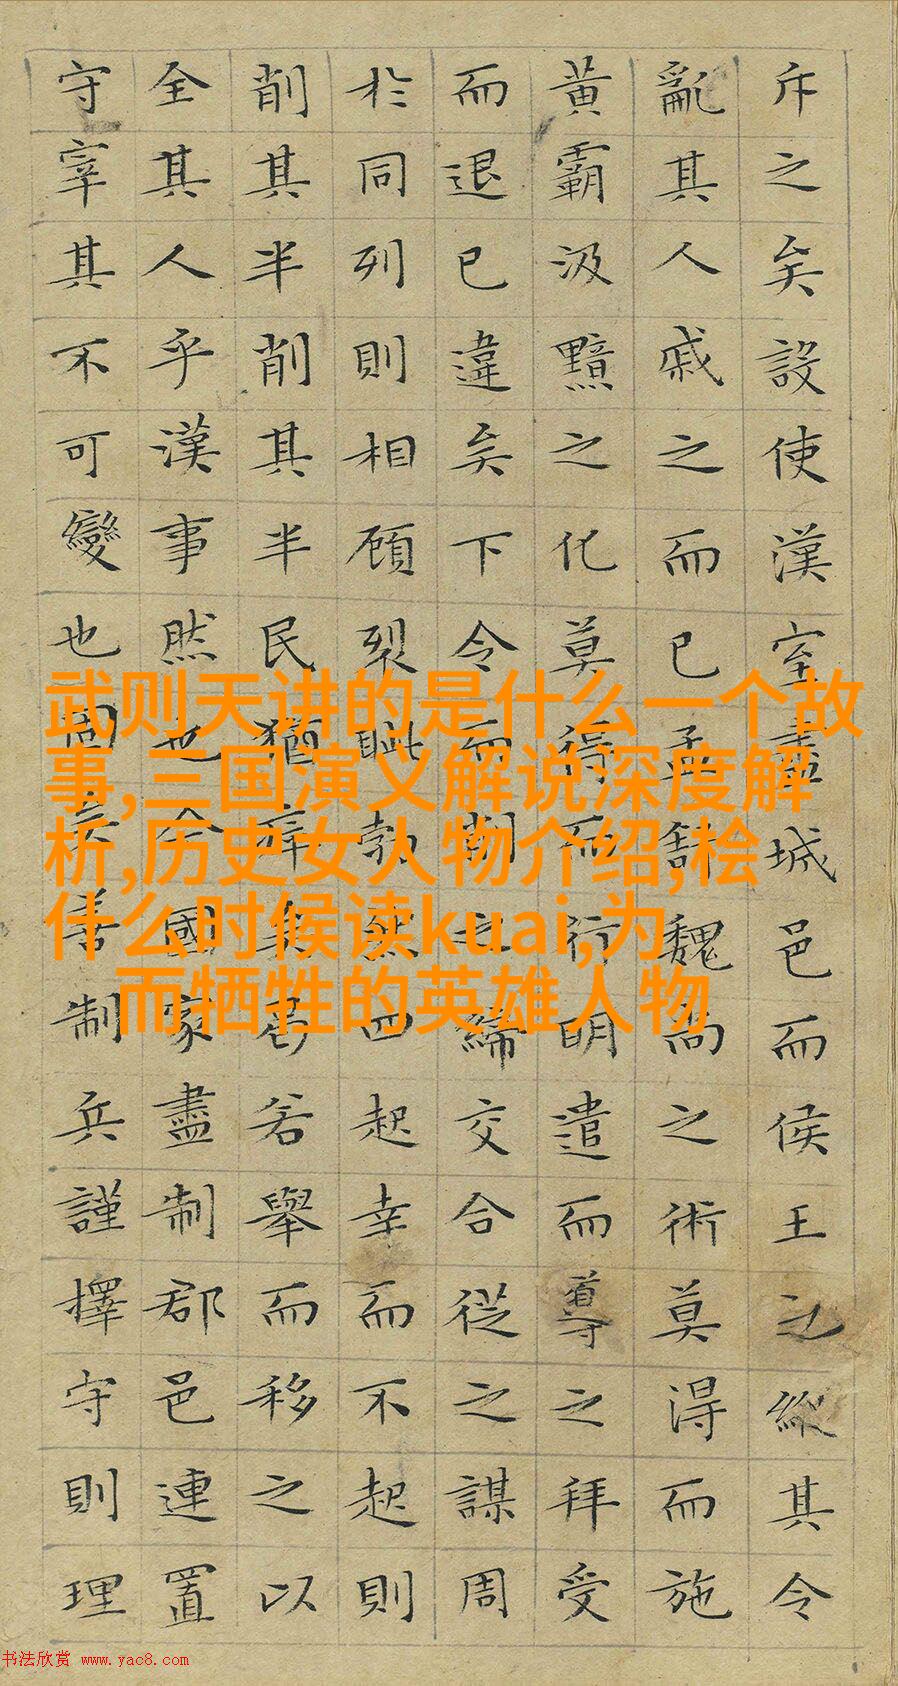 斥之矣設使漢室盡城邑而侯王之縱其令
亂其人戚之而已孟舒魏尚之術莫得而施
黃霸汲黯之化莫得而行明遣而導之拜受
而退已違矣下令而削之締交合從之謀周
於同列則相顧裂眦勃然四起幸而不起則
削其半削其半民猶瘁矣曷若舉而移之以
全其人乎漢事然也今國家盡制郡邑連置
守宰其不可變也固矣善制兵謹擇守則理
武则天讲的是什么一个故
事,三国演义解说深度解
析,历史女人物介绍,桧
什么时候读kuai,为
而牺牲的英雄人物
书法欣赏 www.yac8.com